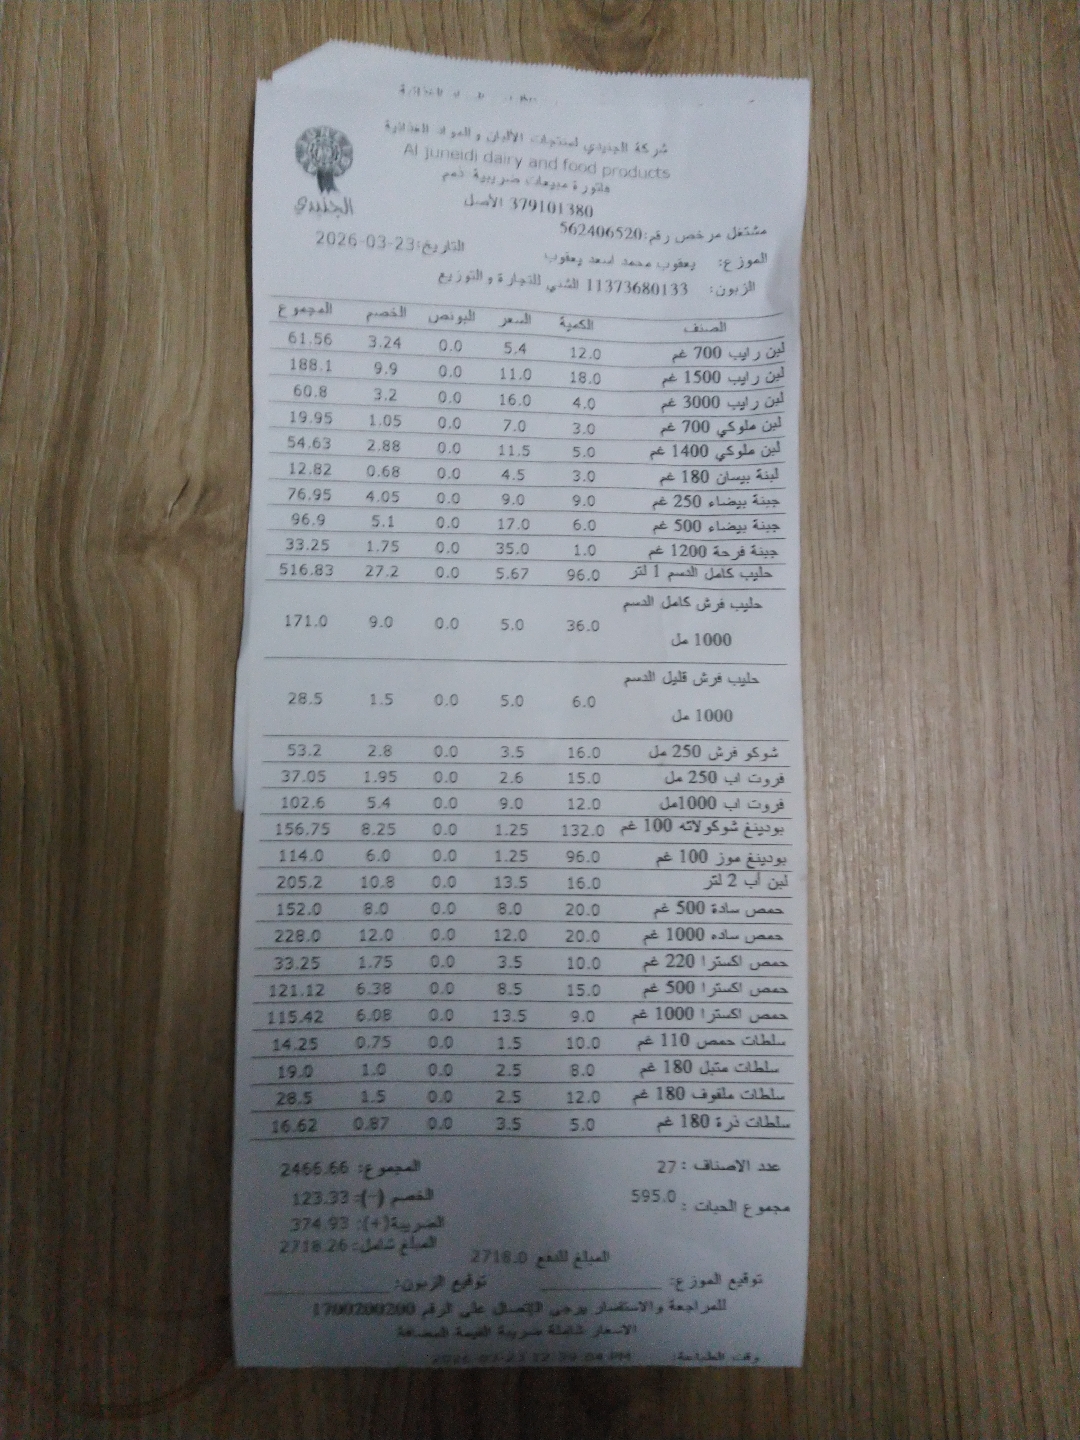 شركة الجنيدي لمنتجات الألبان والمواد الغذائية
Al juneidi dairy and food products
فاتورة مبيعات ضريبية ذمم
379101380 الأصل
الجنيدي
مشتغل مرخص رقم:562406520
الموزع: يعقوب محمد اسعد يعقوب التاريخ:23-03-2026
الزبون: 11373680133 الشني للتجارة والتوزيع
الصنف الكمية السعر البونص الخصم المجموع
لبن رايب 700 غم 12.0 5.4 0.0 3.24 61.56
لبن رايب 1500 غم 18.0 11.0 0.0 9.9 188.1
لبن رايب 3000 غم 4.0 16.0 0.0 3.2 60.8
لبن ملوكي 700 غم 3.0 7.0 0.0 1.05 19.95
لبن ملوكي 1400 غم 5.0 11.5 0.0 2.88 54.63
لبنة بيسان 180 غم 3.0 4.5 0.0 0.68 12.82
جبنة بيضاء 250 غم 9.0 9.0 0.0 4.05 76.95
جبنة بيضاء 500 غم 6.0 17.0 0.0 5.1 96.9
جبنة فرحة 1200 غم 1.0 35.0 0.0 1.75 33.25
حليب كامل الدسم 1 لتر 96.0 5.67 0.0 27.2 516.83
حليب فرش كامل الدسم
1000 مل 36.0 5.0 0.0 9.0 171.0
حليب فرش قليل الدسم
1000 مل 6.0 5.0 0.0 1.5 28.5
شوكو فرش 250 مل 16.0 3.5 0.0 2.8 53.2
فروت اب 250 مل 15.0 2.6 0.0 1.95 37.05
فروت اب 1000مل 12.0 9.0 0.0 5.4 102.6
بودينغ شوكولاته 100 غم 132.0 1.25 0.0 8.25 156.75
بودينغ موز 100 غم 96.0 1.25 0.0 6.0 114.0
لبن أب 2 لتر 16.0 13.5 0.0 10.8 205.2
حمص سادة 500 غم 20.0 8.0 0.0 8.0 152.0
حمص ساده 1000 غم 20.0 12.0 0.0 12.0 228.0
حمص اكسترا 220 غم 10.0 3.5 0.0 1.75 33.25
حمص اكسترا 500 غم 15.0 8.5 0.0 6.38 121.12
حمص اكسترا 1000 غم 9.0 13.5 0.0 6.08 115.42
سلطات حمص 110 غم 10.0 1.5 0.0 0.75 14.25
سلطات متبل 180 غم 8.0 2.5 0.0 1.0 19.0
سلطات ملفوف 180 غم 12.0 2.5 0.0 1.5 28.5
سلطات ذرة 180 غم 5.0 3.5 0.0 0.87 16.62
عدد الاصناف : 27 المجموع: 2466.66
مجموع الحبات : 595.0 الخصم (-): 123.33
الضريبة(+): 374.93
المبلغ شامل: 2718.26
المبلغ للدفع 2718.0
توقيع الموزع: توقيع الزبون:
للمراجعة والاستفسار يرجى الإتصال على الرقم 1700200200
الاسعار شاملة ضريبة القيمة المضافة
وقت الطباعة: